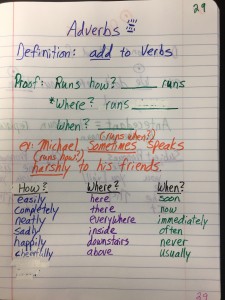 29
Adverbs
Definition: add to Verbs
Proof: Runs how? ____ runs
*Where? runs ____
When?
(runs when?)
ex: Michael sometimes speaks
(runs how?)
harshly to his friends.
How? Where? When?
easily here soon
completely there now
neatly everywhere immediately
sadly inside often
happily downstairs never
cheerfully above usually
29